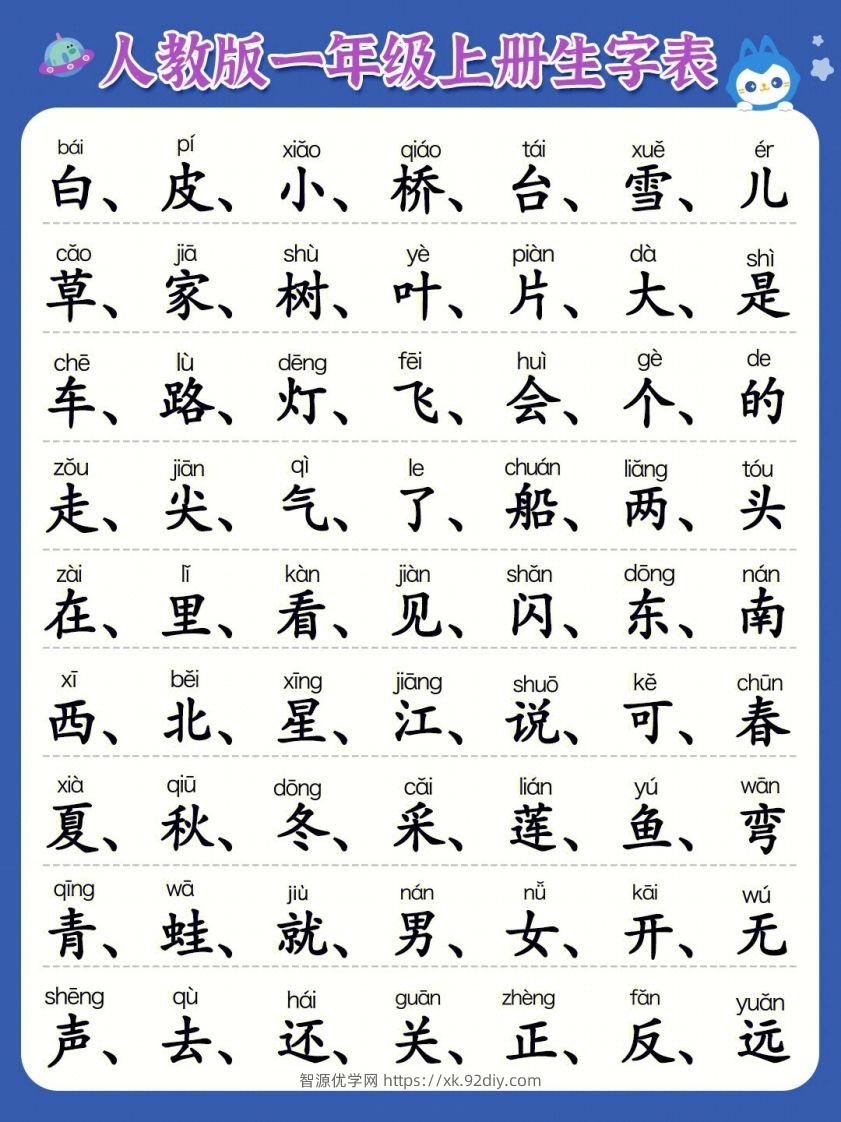 人教版一年级上册生字表
bái pí xiǎo qiáo tái xuě ér
白、皮、小、桥、台、雪、儿
cǎo jiā shù yè piàn dà shì
草、家、树、叶、片、大、是
chē lù dēng fēi huì gè de
车、路、灯、飞、会、个、的
zǒu jiān qì le chuán liǎng tóu
走、尖、气、了、船、两、头
zài lǐ kàn jiàn shǎn dōng nán
在、里、看、见、闪、东、南
xī běi xīng jiāng shuō kě chūn
西、北、星、江、说、可、春
xià qiū dōng cǎi lián yú wān
夏、秋、冬、采、莲、鱼、弯
qīng wā jiù nán nǚ kāi wú
青、蛙、就、男、女、开、无
shēng qù hái guān zhèng fǎn yuǎn
声、去、还、关、正、反、远
智源优学网 https://xk.92diy.com